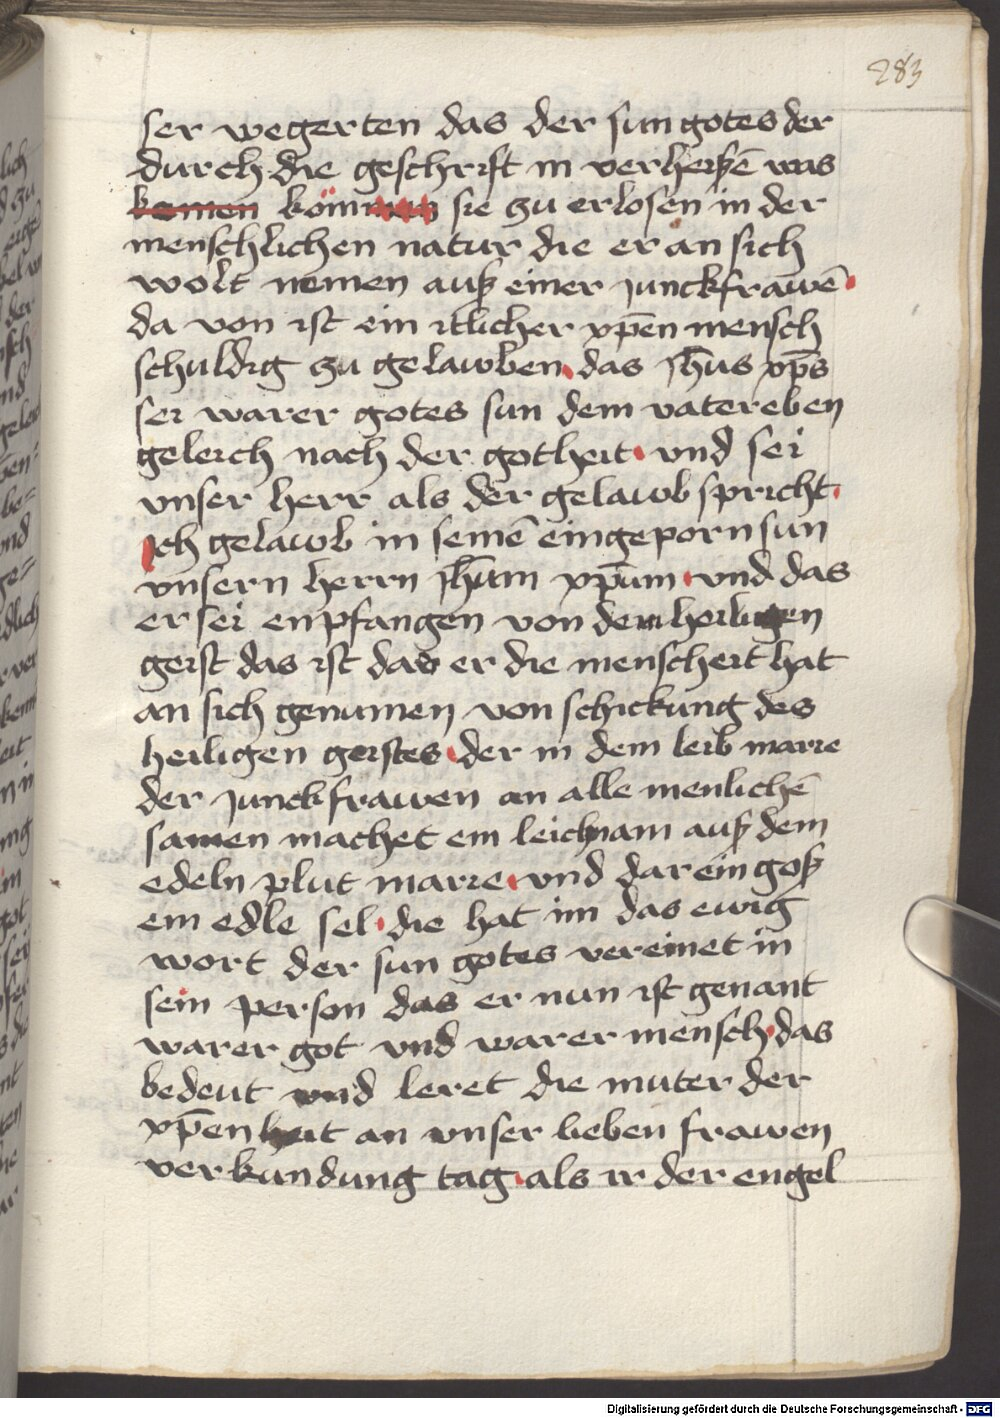 283
ser wegerten das der sun gotes der
durch die geschrift in verheissē was
komen kömmen sie zu erlosen in der
menschlichen natur die er an sich
wolt nemen auß einer junckfrawē
da von ist ein itlicher xp̄en mensch
schuldig zu gelawben das jh̄us xp̄s
sei warer gotes sun dem vater eben
geleich nach der gotheit und sei
vnser herr als der gelawb spricht
Ich gelawb in seinē eingeporn sun
vnsern herrn jh̄um xp̄um vnd das
er sei enpfangen von dem heiligen
geist das ist das er die menscheit hat
an sich genumen von schickung des
heiligen geistes der in dem leib marie
der junckfrawen an alle menlichē
samen machet ein leichnam auß dem
edeln plut marie vnd dar ein goß
ein edle sel die hat im das ewig
wort der sun gotes vereinet in
sein person das er nun ist genant
warer got vnd warer mensch das
bedeut vnd leret die muter der
xp̄enheit an vnser lieben frawen
verkundung tag als ir der engel
Digitalisierung gefördert durch die Deutsche Forschungsgemeinschaft - DFG